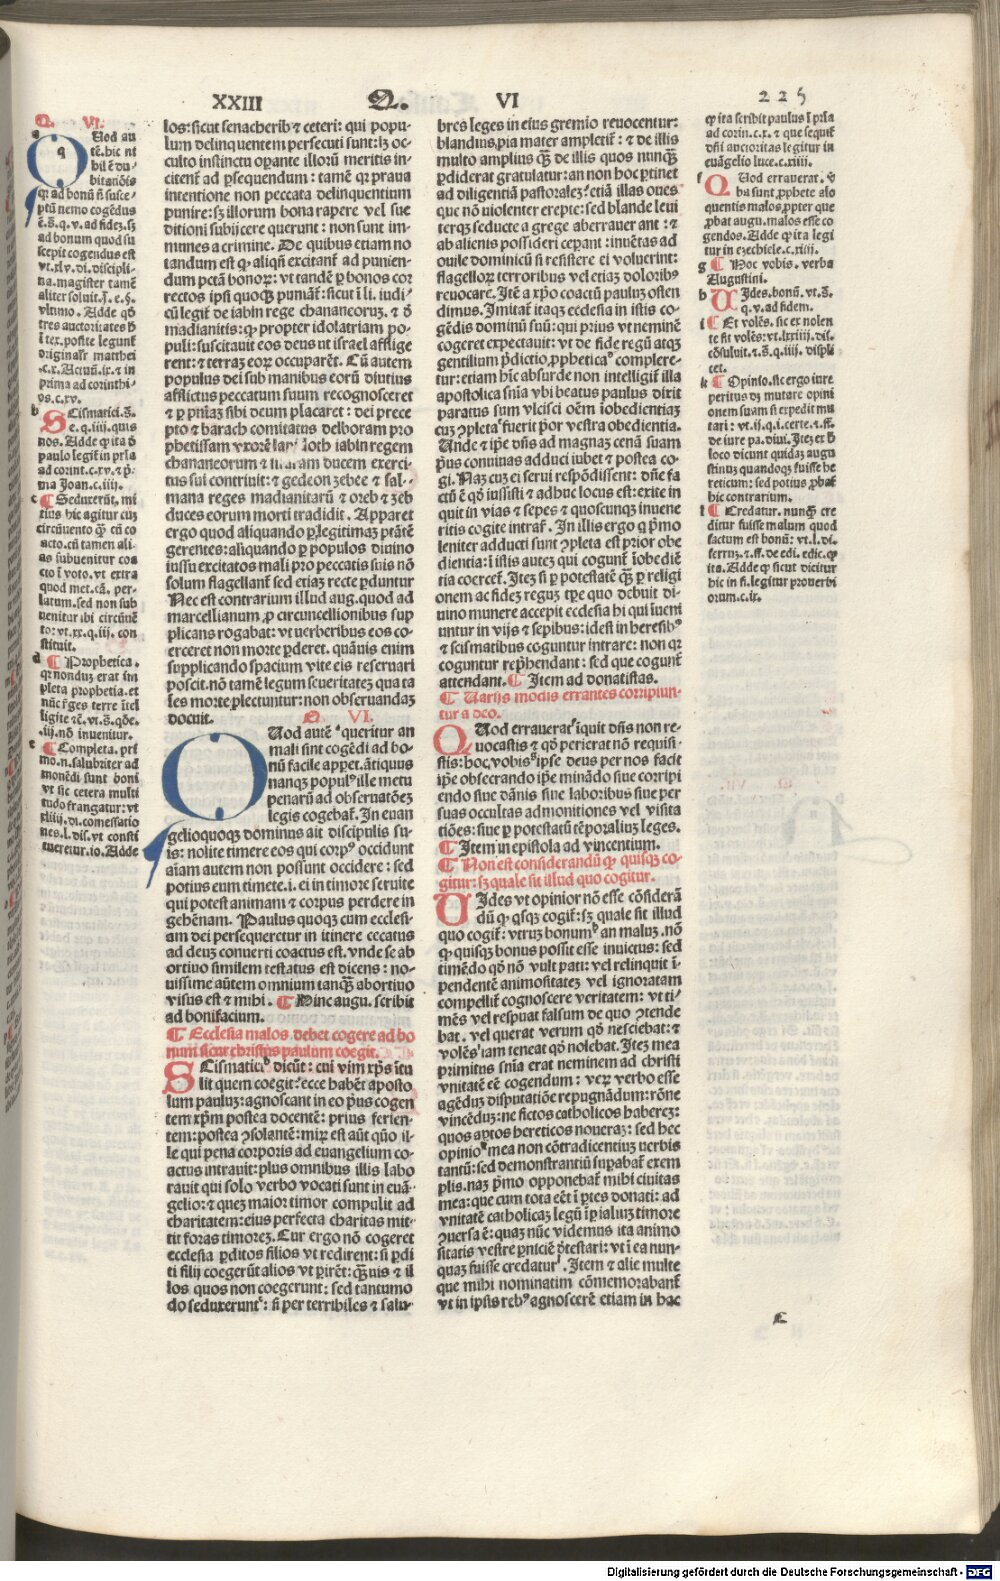 XXIII Q. VI 225
Q. VI.
Quod au
tē. hic ni
bil ē du-
bitatiōis
ꝙ ad bonū n̄ susce-
ptū nemo cogēdus
ē. s̄. q. v. ad fidez. sꝫ
ad bonum quod su
scepit cogendus est
vt. xlv. di. discipli-
na. magister tamē
aliter soluit. j. e. §.
vltimo. Adde qd̄
tres auctoritates ī
ī tex. posite legunt̄
originalr̄ matthei
.c.x. Actuū. ix. ⁊ in
prima ad corinthi-
os. c. xv.
b Scismatici. s̄.
e. q. iiij. quis
nos. Adde ꝙ ita d̄
paulo legit̄ in pr̄ia
ad corint. c. xv. ⁊ p̄-
ma Joan. c. iiij.
c ¶ Seduxerūt. mi
tius hic agitur cuꝫ
circūuento ꝙ cū co
acto. cū tamen ali-
as subuenitur coa
cto ī voto. vt extra
quod met. cā. per-
latum. sed non sub
uenitur ibi circūuē
to: vt. xx. q. iij. con
stituit.
d ¶ Prophetica.
qꝛ nonduꝫ erat im
pleta prophetia. et
nūc reges terre ītel
ligite ⁊c. vt. s̄. q̄oe.
.iij. nō inuenitur.
e ¶ Completa. pri
mo. n. salubriter ad
monēdi sunt boni
vt sic cetera multi
tudo frangatur: vt
xliiij. di. comessatio
nes. l. dis. vt consti
tueretur. io. Adde
los: sicut senacherib ⁊ ceteri: qui popu-
lum delinquentem persecuti sunt: lꝫ oc-
culto instinctu opante illorū meritis in-
citent̄ ad ꝑsequendum: tamē qꝛ praua
intentione non peccata delinquentium
punire: sꝫ illorum bona rapere vel sue
ditioni subijcere querunt: non sunt im-
munes a crimine. De quibus etiam no
tandum est ꝙ aliqn̄ excitant̄ ad punien-
dum pctā bonoꝝ: vt tandē ꝑ bonos cor
rectos ipsi quoqꝫ puniāt̄: sicut ī li. iudi-
cū legit̄ de iabin rege chananeoruꝫ. ⁊ d̄
madianitis: ꝙ propter idolatriam po-
puli: suscitauit eos deus ut israel afflige
rent: ⁊ terraꝫ eoꝝ occuparēt. Cū autem
populus dei sub manibus eorū diutius
afflictus peccatum suum recognosceret
⁊ ꝑ pn̄iaꝫ sibi deum placaret: dei prece
pto ⁊ barach comitatus delboram pro
phetissam vxorē lapidoth iabin regem
chananeorum ⁊ sisaram ducem exerci-
tus sui contriuit: ⁊ gedeon zebee ⁊ sal-
mana reges madianitarū ⁊ oreb ⁊ zeb
duces eorum morti tradidit. Apparet
ergo quod aliquando ꝑ legitimaꝫ ptātē
gerentes: aliquando ꝑ populos diuino
iussu excitatos mali pro peccatis suis nō
solum flagellant̄ sed etiaꝫ recte ꝑduntur
Nec est contrarium illud aug. quod ad
marcellianum ꝓ circuncellionibus sup
plicans rogabat: vt uerberibus eos co-
erceret non morte ꝑderet. quāuis enim
supplicando spacium vite eis reseruari
poscit. nō tamē legum seueritateꝫ qua ta
les morte plectuntur: non obseruandaꝫ
docuit. Q. VI.
Quod autē queritur an
mali sint cogēdi ad bo-
nū facile appet. ātiquus
nanqꝫ populꝰ ille metu
penarū ad obseruatōeꝫ
legis cogebat̄. In euan
gelioquoqꝫ dominus ait discipulis su-
is: nolite timere eos qui corpꝰ occidunt
aīam autem non possunt occidere: sed
potius eum timete. i. ei in timore seruite
qui potest animam ⁊ corpus perdere in
gehēnam. Paulus quoqꝫ cum ecclesi-
am dei persequeretur in itinere cecatus
ad deuꝫ conuerti coactus est. vnde se ab
ortiuo similem testatus est dicens: no-
uissime aūtem omnium tanqꝫ abortiuo
visus est ⁊ mihi. ¶ Hinc augu. scribit
ad bonifacium.
¶ Ecclesia malos debet cogere ad bo
num sicut christus paulum coegit.
Scismatici dicūt: cui vim xp̄s ītu
lit quem coegit: ecce habēt aposto
lum pauluꝫ: agnoscant in eo p̄us cogen
tem xp̄m postea docentē: prius ferien-
tem: postea ꝯsolantē: miꝝ est aūt quō il-
le qui pena corporis ad euangelium co-
actus intrauit: plus omnibus illis labo
rauit qui solo verbo vocati sunt in euā-
gelio: ⁊ queꝫ maior timor compulit ad
charitatem: eius perfecta charitas mit-
tit foras timoreꝫ. Cur ergo nō cogeret
ecclesia ꝑditos filios vt redirent: si ꝑdi
ti filij coegerūt alios vt ꝑirēt: qꝫuis ⁊ il
los quos non coegerunt: sed tantumo
do seduxerunt: si per terribiles ⁊ salu-
bres leges in eius gremio reuocentur:
blandiuꝫ pia mater amplctit̄: ⁊ de illis
multo amplius qꝫ̄ de illis quos nunqꝫ̄
ꝑdiderat gratulatur: an non hoc ꝑtinet
ad diligentiā pastoraleꝫ: etiā illas oues
que nō uiolenter erepte: sed blande leui
terqꝫ seducte a grege aberrauer ant: ⁊
ab alienis possideri cepant: inuētas ad
ouile dominicū si resistere ei voluerint:
flagelloꝝ terroribus vel etiaꝫ doloribꝰ
reuocare. Itē a xp̄o coactū pauluꝫ osten
dimus. Imitat̄ itaqꝫ ecclesia in istis co-
gēdis dominū suū: qui prius vt neminē
cogeret expectauit: vt de fide regū atqꝫ
gentilium p̄dictio ꝓphetica complere-
tur: etiam hīc absurde non intelligit̄ illa
apostolica sn̄ia vbi beatus paulus dixit
paratus sum vlcisci oēm īobedientiaꝫ
cuꝫ ꝯpleta fuerit p̄or vestra obedientia.
Unde ⁊ ip̄e dn̄s ad magnaꝫ cenā suam
p̄us conuiuas adduci iubet ⁊ postea co-
gi. Naꝫ cuꝫ ei serui respōdissent: dn̄e fa
ctū ē qd̄ iussisti ⁊ adhuc locus est: exite in
quit in vias ⁊ sepes ⁊ quoscunqꝫ inuene
ritis cogite intrar̄. In illis ergo q̄ p̄mo
leniter adducti sunt ꝯpleta est prior obe
dientia: ī istis auteꝫ qui cogunt̄ īobediē
tia coercet̄. Iteꝫ si ꝑ potestatē qꝫ̄ ꝑ religi
onem ac fideꝫ reguꝫ tꝑe quo debuit di-
uino munere accepit ecclesia hi qui īueni
untur in vijs ⁊ sepibus: idest in heresibꝰ
⁊ scismatibus coguntur intrare: non qꝛ
coguntur rep̄hendant: sed que cogunt̄
attendant. ¶ Item ad donatistas.
¶ Varijs modis errantes corripiun-
tur a deo.
Quod erraueratꝭ īquit dn̄s non re-
uocastis ⁊ qd̄ perierat nō requisi-
stis: hoc vobis ipse deus per nos facit
ip̄e obsecrando ip̄e mināndo siue corripi
endo siue dānis siue laboribus siue per
suas occultas admonitiones vel visita
tiōes: siue ꝑ potestatū tēporalium leges.
¶ Item in epistola ad vincentium.
¶ Non est considerandū ꝙ quisqꝫ co-
gitur: sꝫ quale sit illud quo cogitur.
Uides vt opinior nō esse cōsiderā
dū ꝙ qsqꝫ cogit̄: sꝫ quale sit illud
quo cogit̄: vtruꝫ bonum an maluꝫ. nō
ꝙ quisqꝫ bonus possit esse inuictus: sed
timēdo qd̄ nō vult pati: vel relinquit ī-
pendentē animositateꝫ vel ignoratam
compellit̄ cognoscere veritatem: vt ti-
mēs vel respuat falsum de quo ꝯtende
bat. vel querat verum qd̄ nesciebat: ⁊
volēs iam teneat qd̄ nolebat. Iteꝫ mea
primitus sn̄ia erat neminem ad christi
vnitatē eē cogendum: veꝝ verbo esse
agēduꝫ disputatiōe repugnādum: rōne
vincēduꝫ: ne fictos catholicos habereꝫ:
quos aꝑtos hereticos noueraꝫ: sed hec
opinio mea non cōtradicentiuꝫ uerbis
tantū: sed demonstrantiū supabat̄ exem
plis. naꝫ p̄mo opponebat̄ mihi ciuitas
mea: que cum tota eēt ī ꝑtes donati: ad
vnitatē catholicaꝫ legū īꝑialuꝫ timore
ꝯuersa ē: quaꝫ nūc videmus ita animo
sitatis vestre ꝑniciē p̄testari: vt ī ea nun-
quaꝫ fuisse credatur. Item ⁊ alie multe
que mihi nominatim cōmemorabant̄
vt in ipsis rebꝰ agnoscerē etiam in hac
ꝙ ita scribit paulus ī pr̄ia
ad corin. c. x. ⁊ que sequit̄
dn̄i auctoritas legitur in
euāgelio luce. c. xiiij.
f Quod errauerat. v̄
ba sunt ꝓphete alo
quentis malos ꝓpter que
ꝓbat augu. malos esse co
gendos. Adde ꝙ ita legi
tur in ezechiele. c. xxiij.
g ¶ Hoc vobis. verba
Augustini.
h Uides. bonū. vt. s̄.
q. v. ad fidem.
i ¶ Et volēs. sic ex nolen
te fit volēs: vt. lxxiiij. dis.
cōsuluit. ⁊. s̄. q. iiij. displi
cet.
k ¶ Opinio. sic ergo iure
peritus dꝫ mutare opini
onem suam si expedit mu
tari: vt. ij. q. i. certe. ⁊. ff.
de iure pa. diui. Iteꝫ ex b
loco dicunt quidaꝫ augu
stinuꝫ quandoqꝫ fuisse he
reticum: sed potius ꝓbat̄
hic contrarium.
l ¶ Credatur. nunqꝫ̄ cre
ditur fuisse malum quod
factum est bonū: vt. l. di.
ferruꝫ. ⁊. ff. de edi. edic. ꝙ
ita. Adde ꝙ sicut dicitur
hic in fi. legitur prouerbi
orum. c. ix.
Digitalisierung gefördert durch die Deutsche Forschungsgemeinschaft - DFG